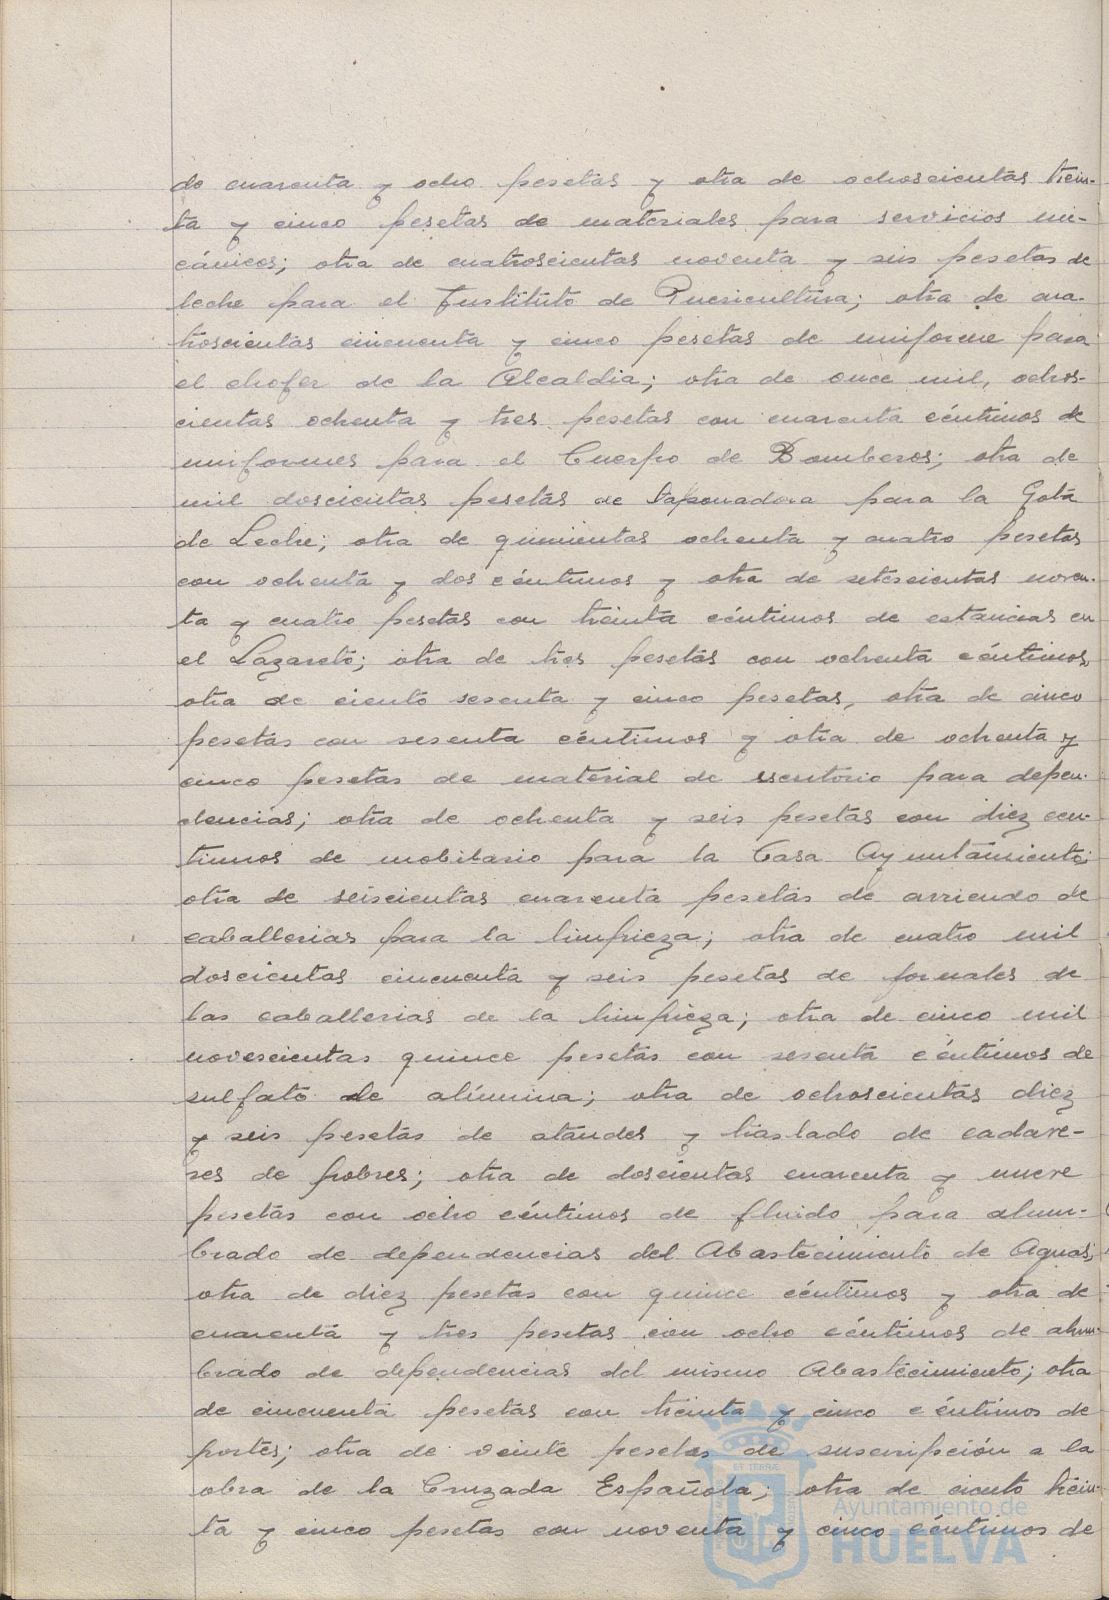 do cuarenta y ocho pesetas y otra de ochoscientas trein-
ta y cinco pesetas de materiales para servicios me-
cánicos; otra de cuatroscientas noventa y seis pesetas de
leche para el Instituto de Puericultura; otra de cua-
troscientas cincuenta y cinco pesetas de uniforme para
el chofer de la Alcaldia; otra de once mil, ochos-
cientas ochenta y tres pesetas con cuarenta céntimos de
uniformes para el Cuerpo de Bomberos; otra de
mil doscientas pesetas de taponadora para la Gota
de Leche; otra de quinientas ochenta y cuatro pesetas
con ochenta y dos céntimos y otra de setescientas noven-
ta y cuatro pesetas con treinta céntimos de estancias en
el Lazareto; otra de tres pesetas con ochenta céntimos,
otra de ciento sesenta y cinco pesetas, otra de cinco
pesetas con sesenta céntimos y otra de ochenta y
cinco pesetas de material de escritorio para depen-
dencias; otra de ochenta y seis pesetas con diez cén-
timos de mobilario para la Casa Ayuntamiento;
otra de seiscientas cuarenta pesetas de arriendo de
caballerias para la limpieza; otra de cuatro mil
doscientas cincuenta y seis pesetas de jornales de
las caballerias de la limpieza; otra de cinco mil
novescientas quince pesetas con sesenta céntimos de
sulfato de alúmina; otra de ochoscientas diez
y seis pesetas de ataudes y traslado de cadave-
res de pobres; otra de doscientas cuarenta y nueve
pesetas con ocho céntimos de fluido para alum-
brado de dependencias del Abastecimiento de Aguas;
otra de diez pesetas con quince céntimos y otra de
cuarenta y tres pesetas con ocho céntimos de alum-
brado de dependencias del mismo Abastecimiento; otra
de cincuenta pesetas con treinta y cinco céntimos de
portes; otra de veinte pesetas de suscripción a la
obra de la Cruzada Española; otra de ciento trein-
ta y cinco pesetas con noventa y cinco céntimos de
Ayuntamiento de
HUELVA